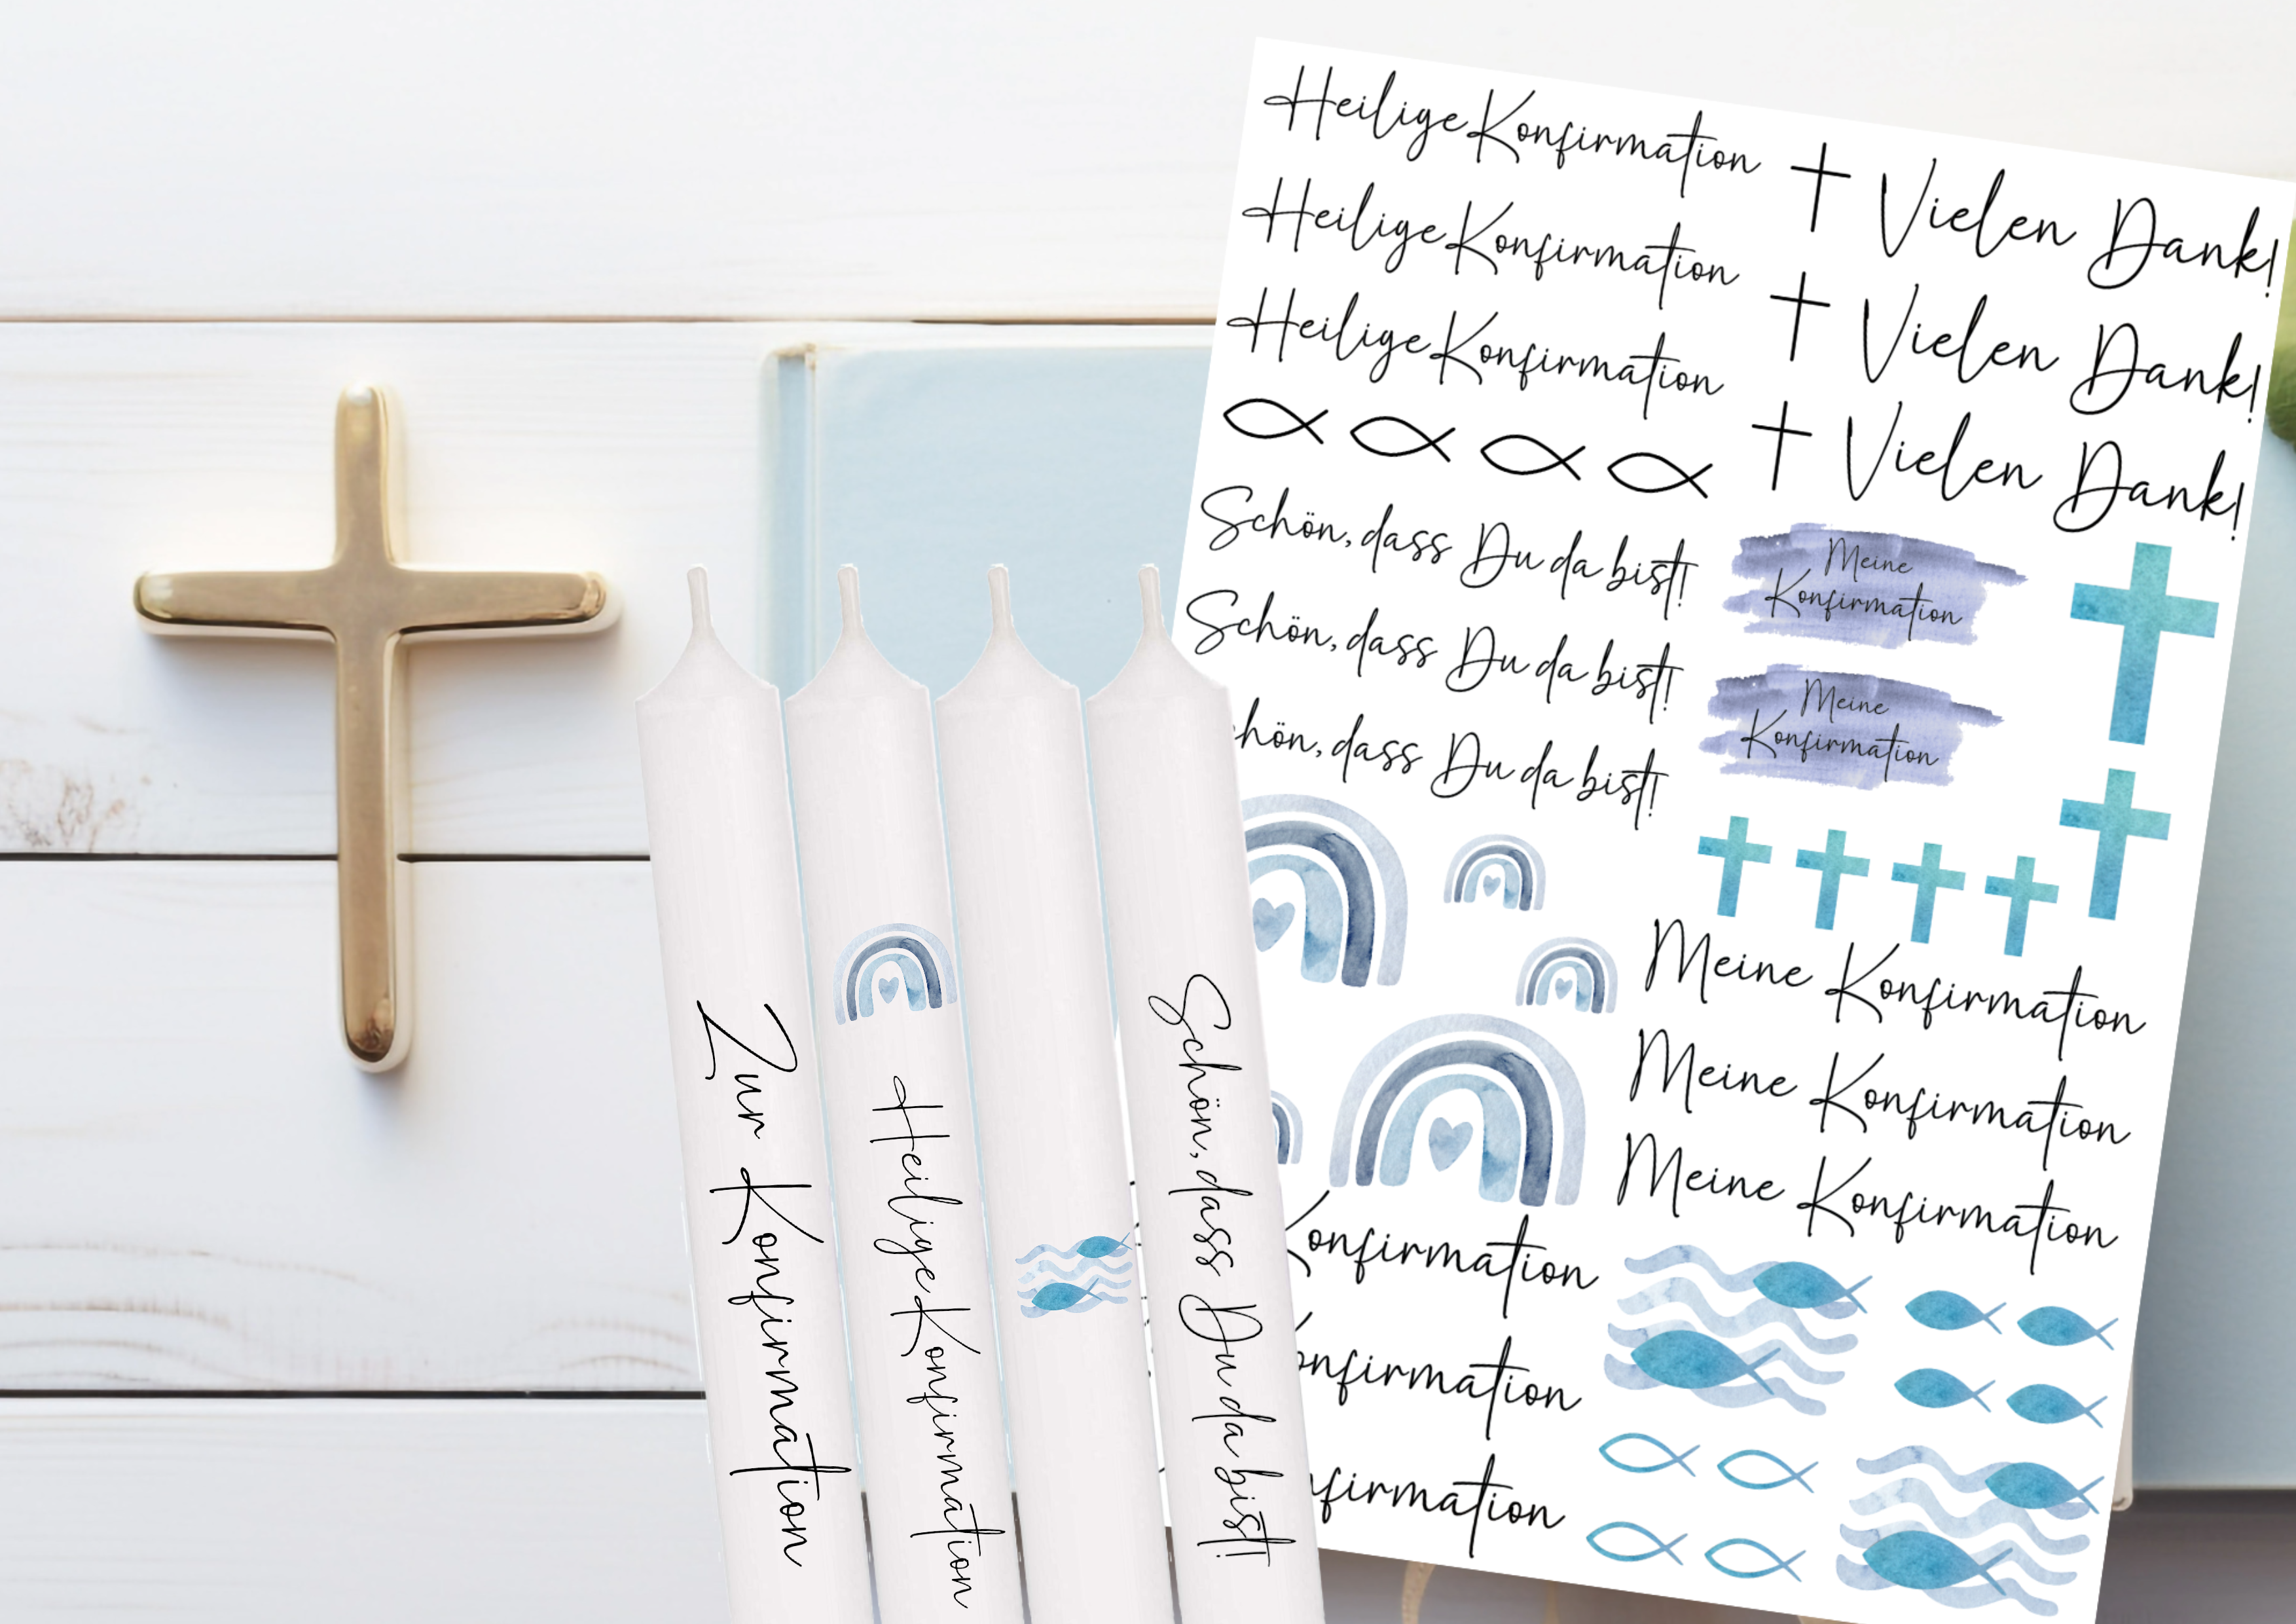 Heilige Konfirmation
Heilige Konfirmation
Heilige Konfirmation
Vielen Dank!
Vielen Dank!
Vielen Dank!
Schön, dass Du da bist!
Schön, dass Du da bist!
chön, dass Du da bist!
Meine
Konfirmation
Meine
Konfirmation
Meine Konfirmation
Meine Konfirmation
Meine Konfirmation
Konfirmation
onfirmation
nfirmation
Zur Konfirmation
Heilige Konfirmation
Schön, dass Du da bist!